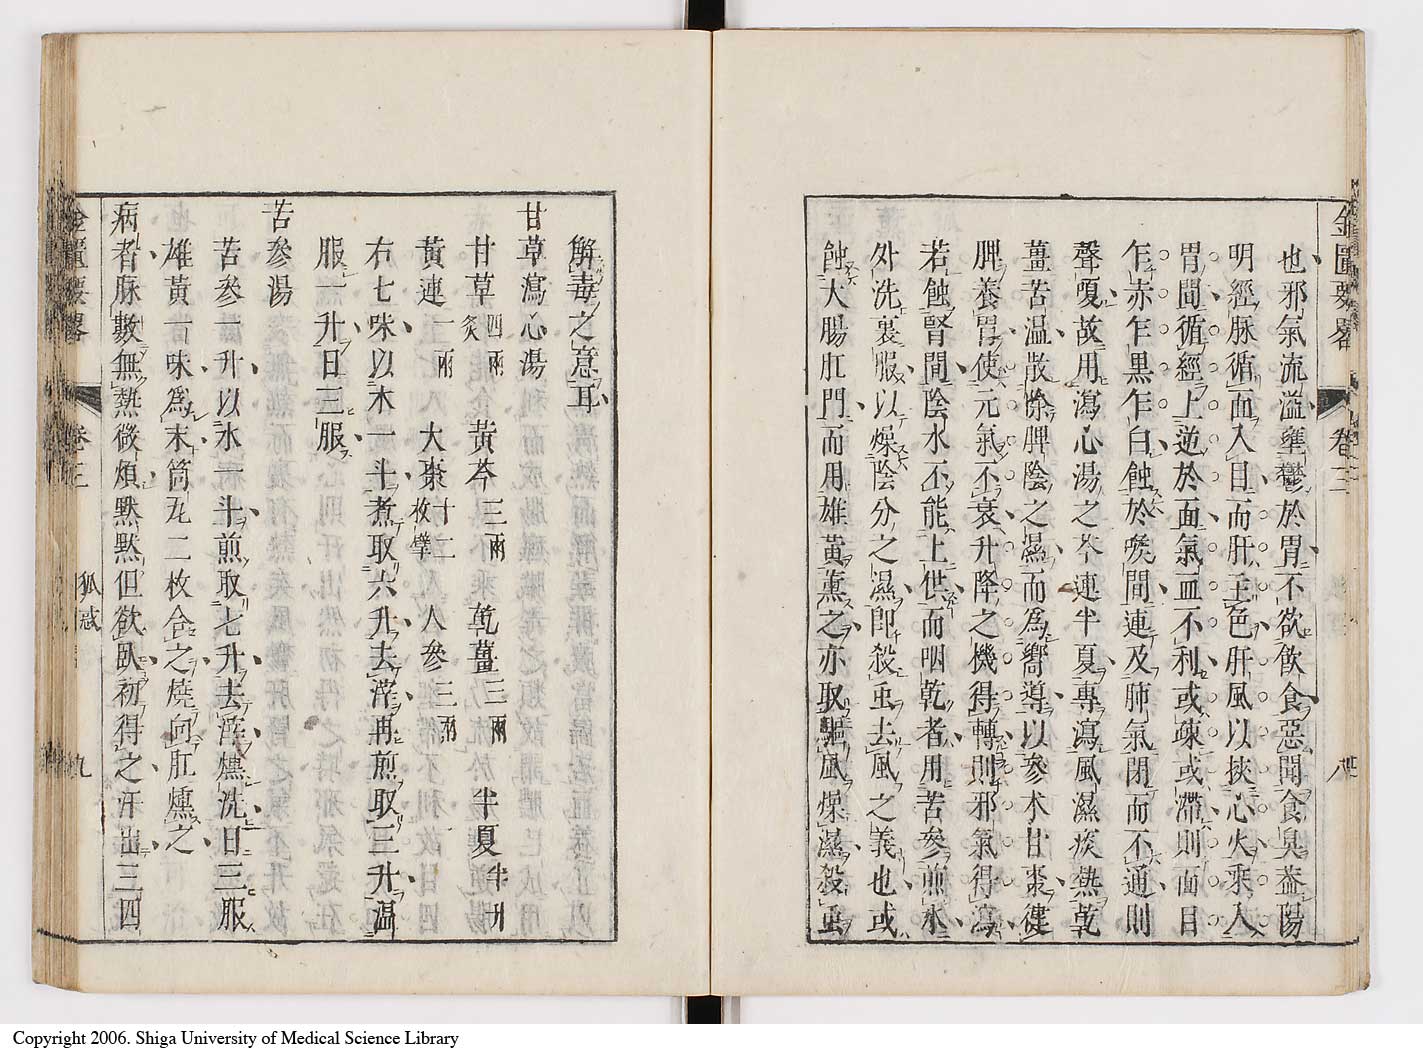 金匱要畧 卷三 八
也邪氣流溢壅鬱於胃不欲飲食惡聞食臭益陽
明經脉循面入目而肝主色肝風以挾心火乘入
胃間循經上逆於面氣血不利或疎或滯則面目
乍赤乍黑乍白蝕於喉間連及肺氣閉而不通則
聲嗄故用瀉心湯之芩連半夏專瀉風濕痰熱乾
薑苦温散除脾陰之濕而為嚮導以參术甘棗健
脾養胃使元氣不衰升降之機得轉則邪氣得瀉
若蝕腎間陰水不能上供而咽乾者用苦參煎水
外洗裏服以燥陰分之濕即殺虫去風之義也或
蝕大腸肛門而用雄黃薰之亦取驅風燥濕殺虫
解毒之意耳
甘草瀉心湯
甘草四兩炙 黃芩三兩 乾薑三兩 半夏半升
黃連一兩 大棗十二枚擘 人參三兩
右七味以水一斗煮取六升去滓再煎取三升温
服一升日三服
苦參湯
苦參一升以水一斗煎取七升去滓燻洗日三服
雄黃一味為末筒瓦二枚合之燒向肛燻之
病者脉數無熱微煩默默但欲臥初得之汗出三四
金匱要畧 卷三 狐惑 九
Copyright 2006. Shiga University of Medical Science Library